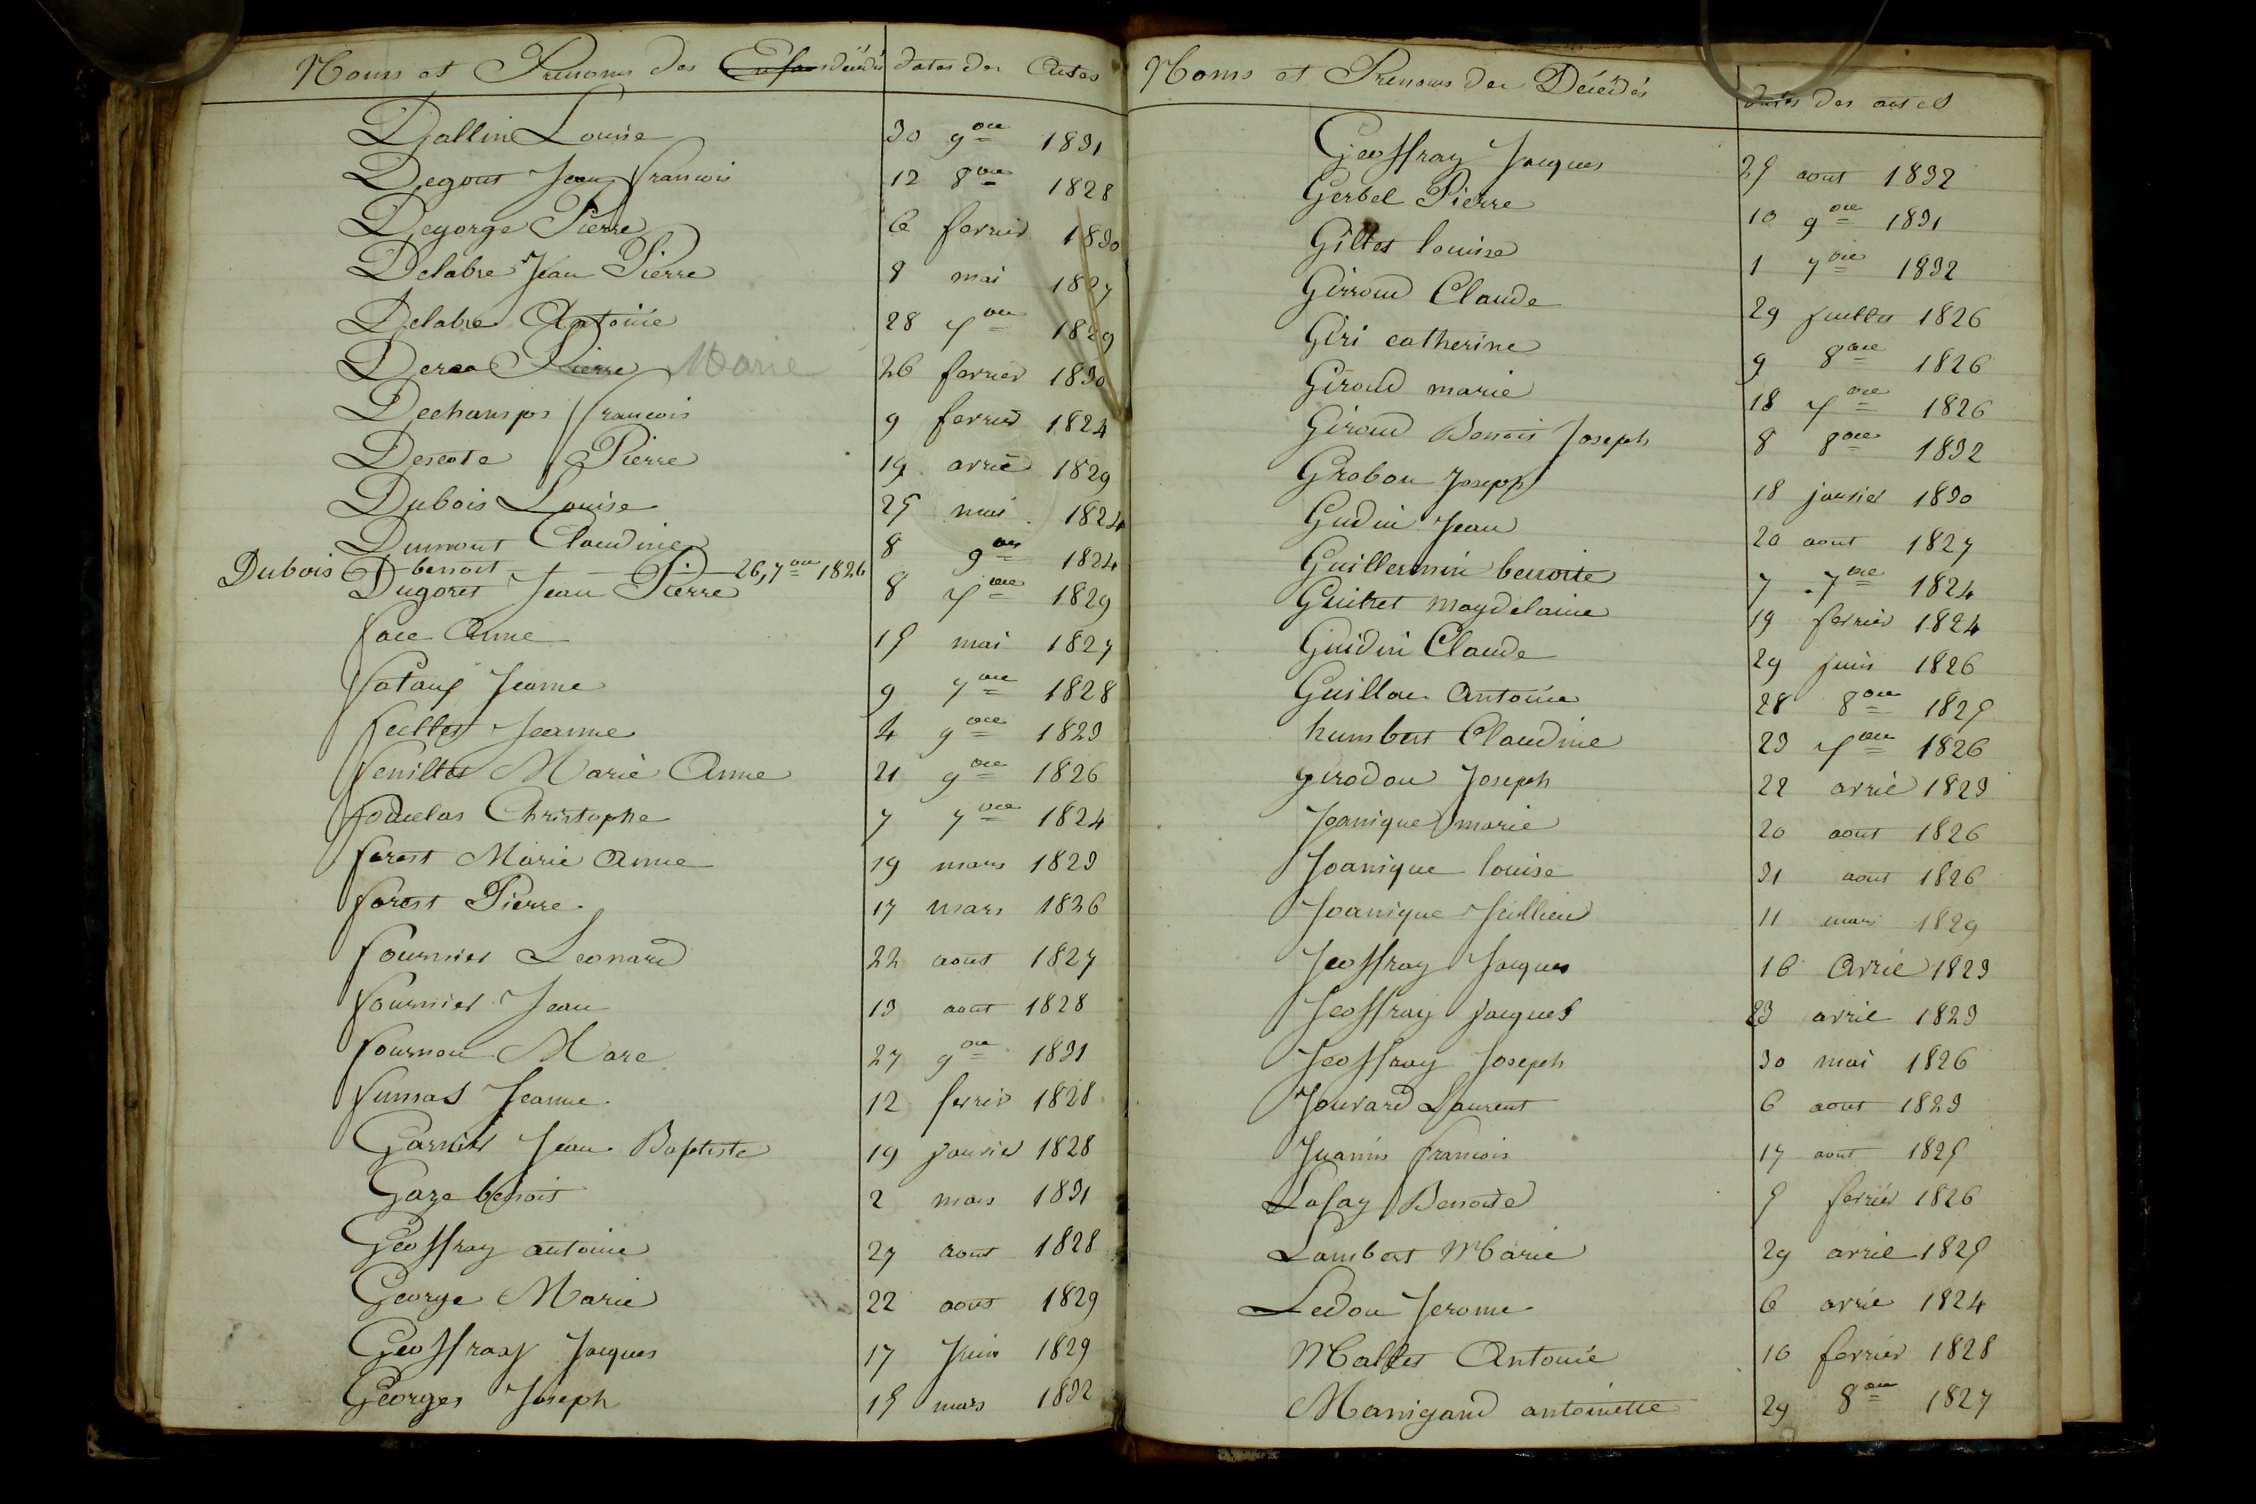 Noms et Prenoms des Enfans décédés dates des Actes
Dallin Louise 30 9bre 1831
Degout Jean francois 12 8bre 1828
Degorge Pierre 6 fevrier 1830
Delabre Jean Pierre 8 mai 1827
Delabre Antoine 28 7bre 1829
Pierre Marie 26 fevrier 1830
Dechamps francois 9 fevrier 1824
Descote Pierre 19 avril 1829
Dubois Louise 25 mai 1824
Dumont Claudine 8 9bre 1824
Dubois benoit 26, 7bre 1826
Dugoret Jean Pierre 8 7bre 1829
face Anne 15 mai 1827
fatauf Jeanne 9 7bre 1828
feuillet Jeanne 4 9bre 1823
feuillet Marie Anne 21 9bre 1826
Christophe 7 7bre 1824
forest Marie Anne 19 mars 1823
forest Pierre 17 mars 1836
fournier Leonard 22 aout 1827
fournier Jean 13 aout 1828
fournon Marc 27 9bre 1831
fumas Jeanne 12 fevrier 1828
Garnier Jean Baptiste 19 janvier 1828
Gaze benoit 2 mars 1831
Geoffray antoine 27 aout 1828
George Marie 22 aout 1829
Geoffray Jacques 17 Juin 1829
Georges Joseph 15 mars 1832
Noms et Prenoms des Décédés dates des actes
Geoffray Jacques 25 aout 1832
Gerbel Pierre 10 9bre 1831
Gillet louise 1 7bre 1832
Girroud Claude 29 juillet 1826
Giri catherine 9 8bre 1826
Giroud marie 18 7bre 1826
Giroud Benoit Joseph 8 8bre 1832
Grobon Joseph 18 janvier 1830
Gudin Jean 20 aout 1827
Guillermin benoite 7 7bre 1824
Guitret magdelaine 19 fevrier 1824
Guidin Claude 29 juin 1826
Guillou Antoine 28 8bre 1825
humbert Claudine 23 7bre 1826
girodon Joseph 22 avril 1823
Joanique marie 20 aout 1826
Joanique louise 31 aout 1826
Joanique Jullien 11 mars 1829
Jeoffray Jacques 16 Avril 1823
Jeoffray jacques 23 avril 1823
Jeoffray Joseph 30 mai 1826
Jouvard Laurent 6 aout 1823
Juanin francois 17 aout 1825
Lafay Benoite 5 fevrier 1826
Lambert Marie 29 avril 1825
Ledou Jerome 6 avril 1824
Mallet Antoine 10 fevrier 1828
Manigand antoinette 29 8bre 1827